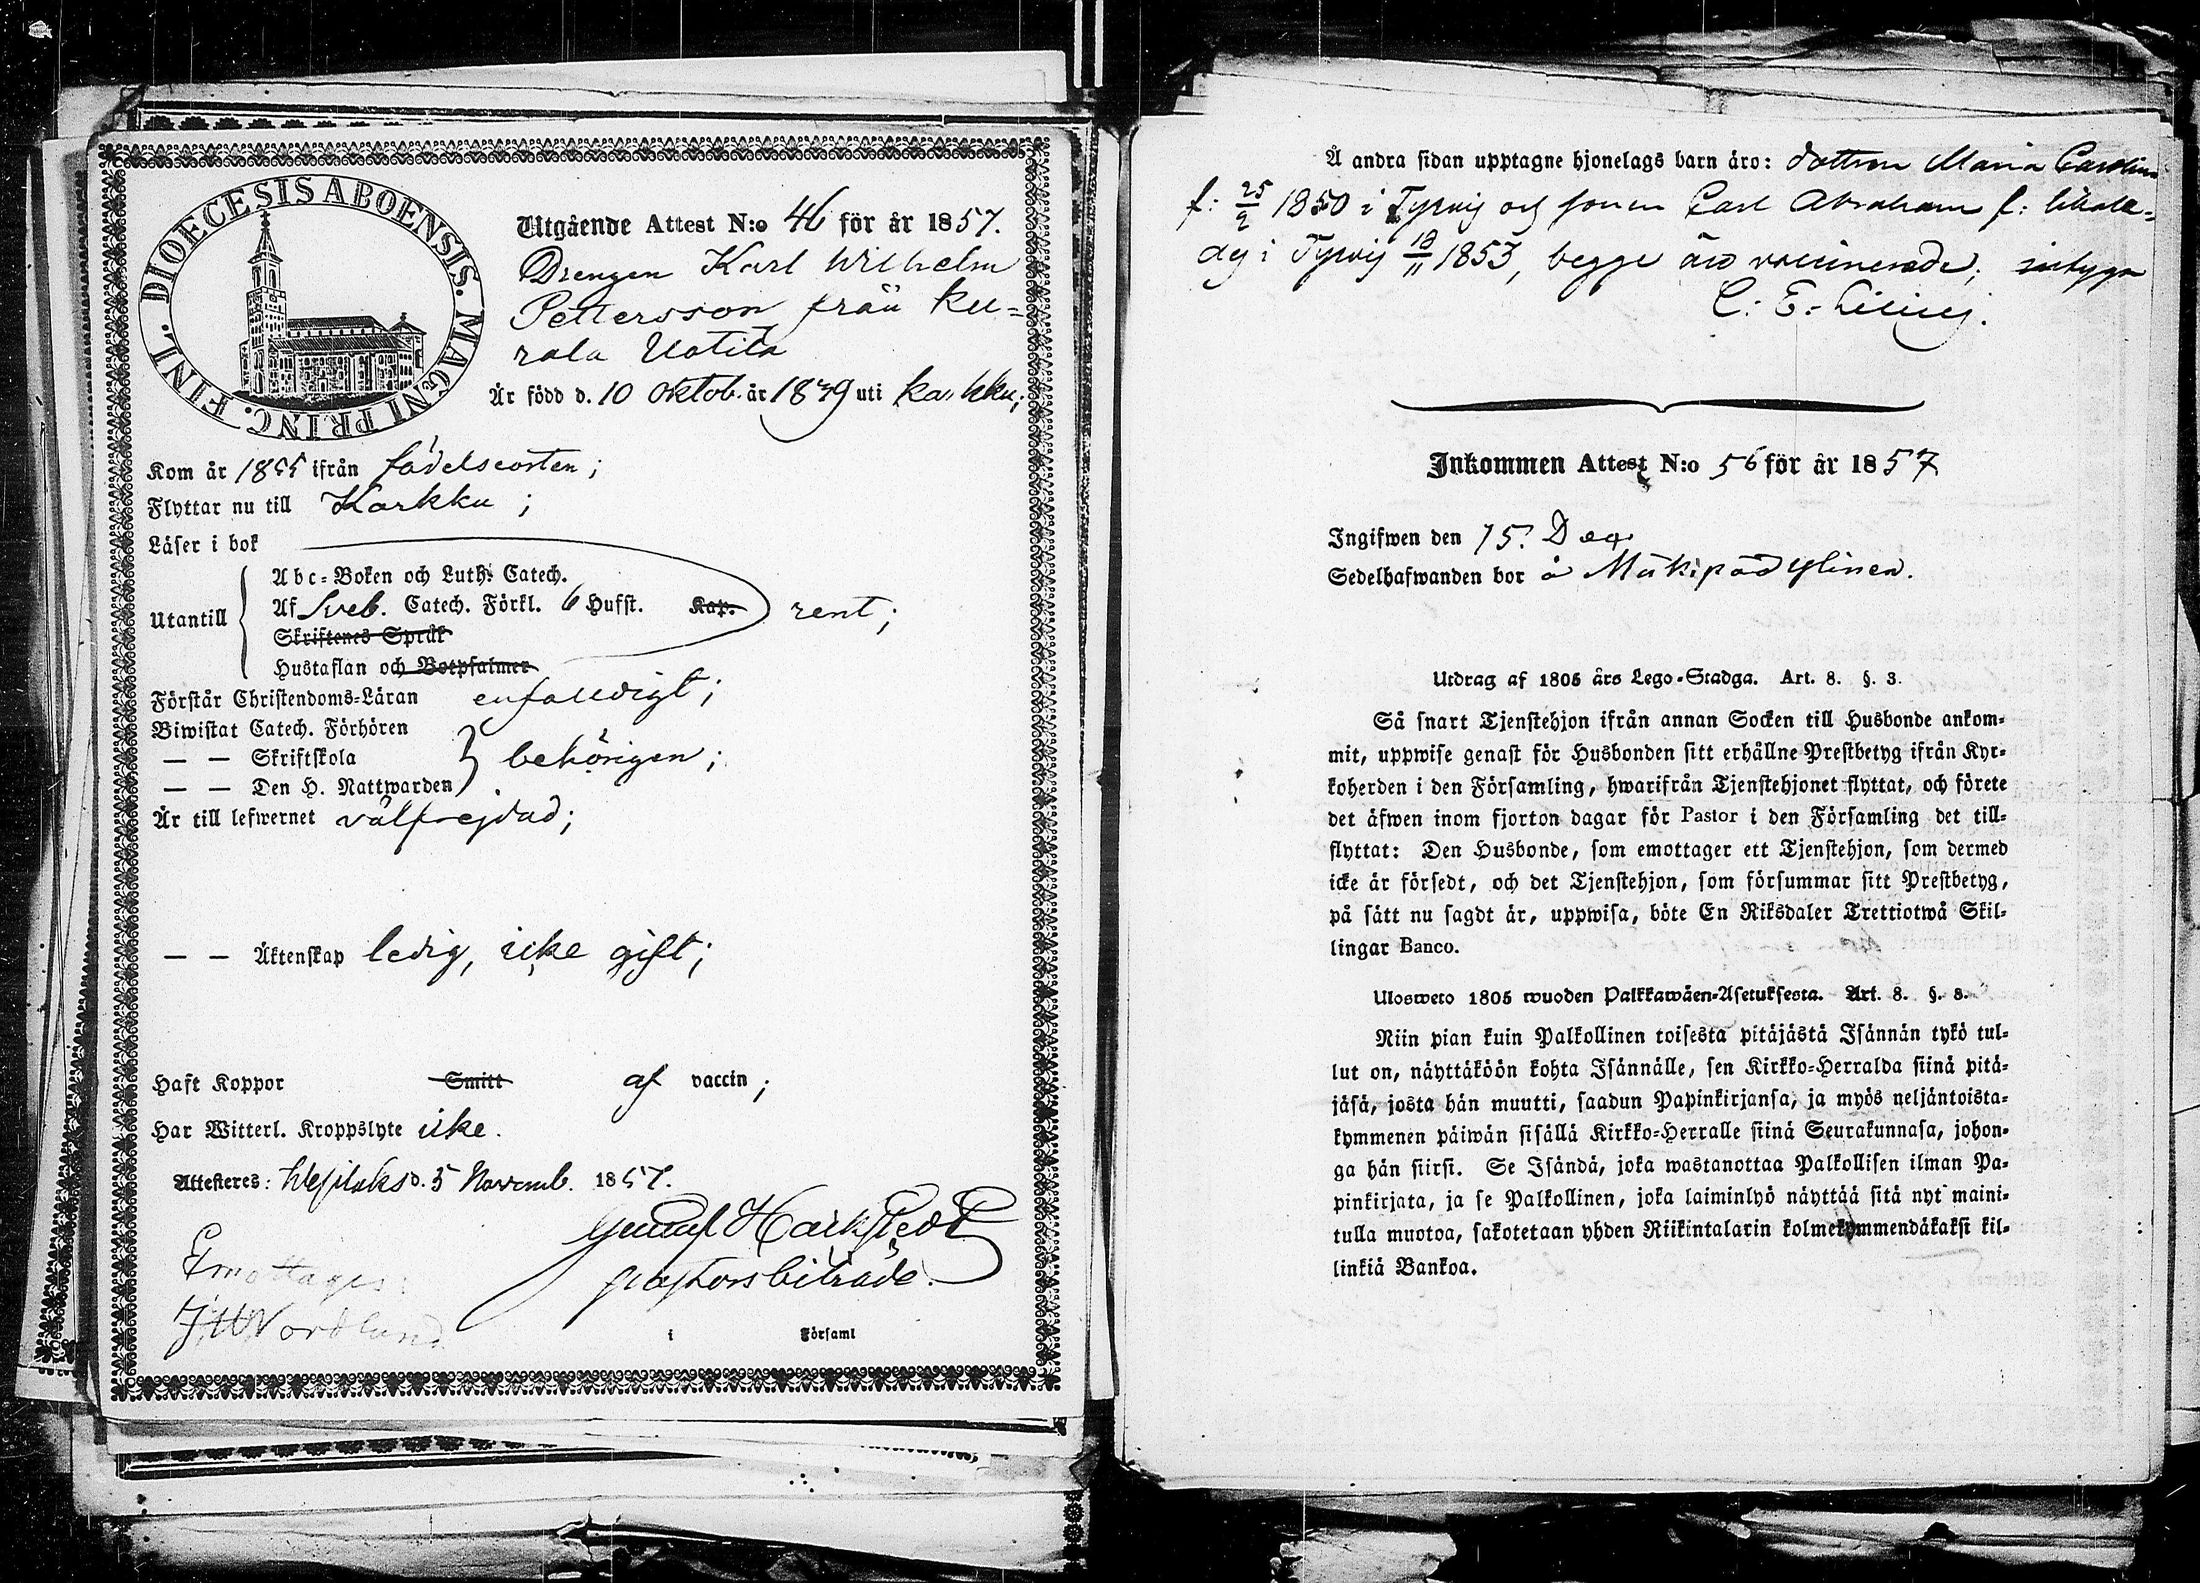 DIOECESIS ABOENSIS. MAGNI PRINC. FINL.
Utgående Attest N:o 46 för år 1857.
Drengen Karl Wilhelm
Pettersson från Ku-
rala Uotila
Är född d. 10 Oktob. år 1839 uti Karkku;
Kom år 1855 ifrån födelseorten;
Flyttar nu till Karkku;
Läser i bok
Abc-Boken och Luth. Catech.
Utantill Af Sveb. Catech. Förkl. 6 Hufst. Kap. rent;
Skriftenes Språk
Hustaflan och Botpsalmer
Förstår Christendoms-Läran enfalldigt;
Biwistat Catech. Förhören
— — Skriftskola behörigen;
— — Den H. Nattwarden
Är till lefwernet välfrejdad;
— — Äktenskap ledig, icke gift;
Haft Koppor Smitt af vaccin;
Har Witterl. Kroppslyte icke.
Attesteres: Wesilaks d. 5 Novemb. 1857.
Gustaf Harkstedt
pastorsbiträde.
Emottages:
Nordlund
i Församl
Å andra sidan upptagne hjonelags barn äro: dottren Maria Carolina
f: 25/9 1850 i Tyrvis och sonen Carl Abraham f: likale-
des i Tyrvis 18/11 1853, begge äro vaccinerade; intygar
Inkommen Attest N:o 56 för år 1857
Ingifwen den 15. Dec.
Sedelhafwanden bor å Mäkipää Ylinen.
Utdrag af 1805 års Lego-Stadga. Art. 8. §. 3.
Så snart Tjenstehjon ifrån annan Socken till Husbonde ankom-
mit, uppwise genast för Husbonden sitt erhållne Prestbetyg ifrån Kyr-
koherden i den Församling, hwarifrån Tjenstehjonet flyttat, och förete
det äfwen inom fjorton dagar för Pastor i den Församling det till-
flyttat: Den Husbonde, som emottager ett Tjenstehjon, som dermed
icke är försedt, och det Tjenstehjon, som försummar sitt Prestbetyg,
på sätt nu sagdt är, uppwisa, böte En Riksdaler Trettiotwå Skil-
lingar Banco.
Ulosweto 1805 wuoden Palkkawäen-Asetuksesta. Art. 8. §. 8.
Niin pian kuin Palkollinen toisesta pitäjästä Isännän tykö tul-
lut on, näyttäköön kohta Isännälle, sen Kirkko-Herralda siinä pitä-
jäsä, josta hän muutti, saadun Papinkirjansa, ja myös neljäntoista-
kymmenen päiwän sisällä Kirkko-Herralle siinä Seurakunnasa, johon-
ga hän siirsi. Se Isändä, joka wastanottaa Palkollisen ilman Pa-
pinkirjata, ja se Palkollinen, joka laiminlyö näyttää sitä nyt maini-
tulla muotoa, sakotetaan yhden Riikintalarin kolmekymmendäkaksi kil-
linkiä Bankoa.